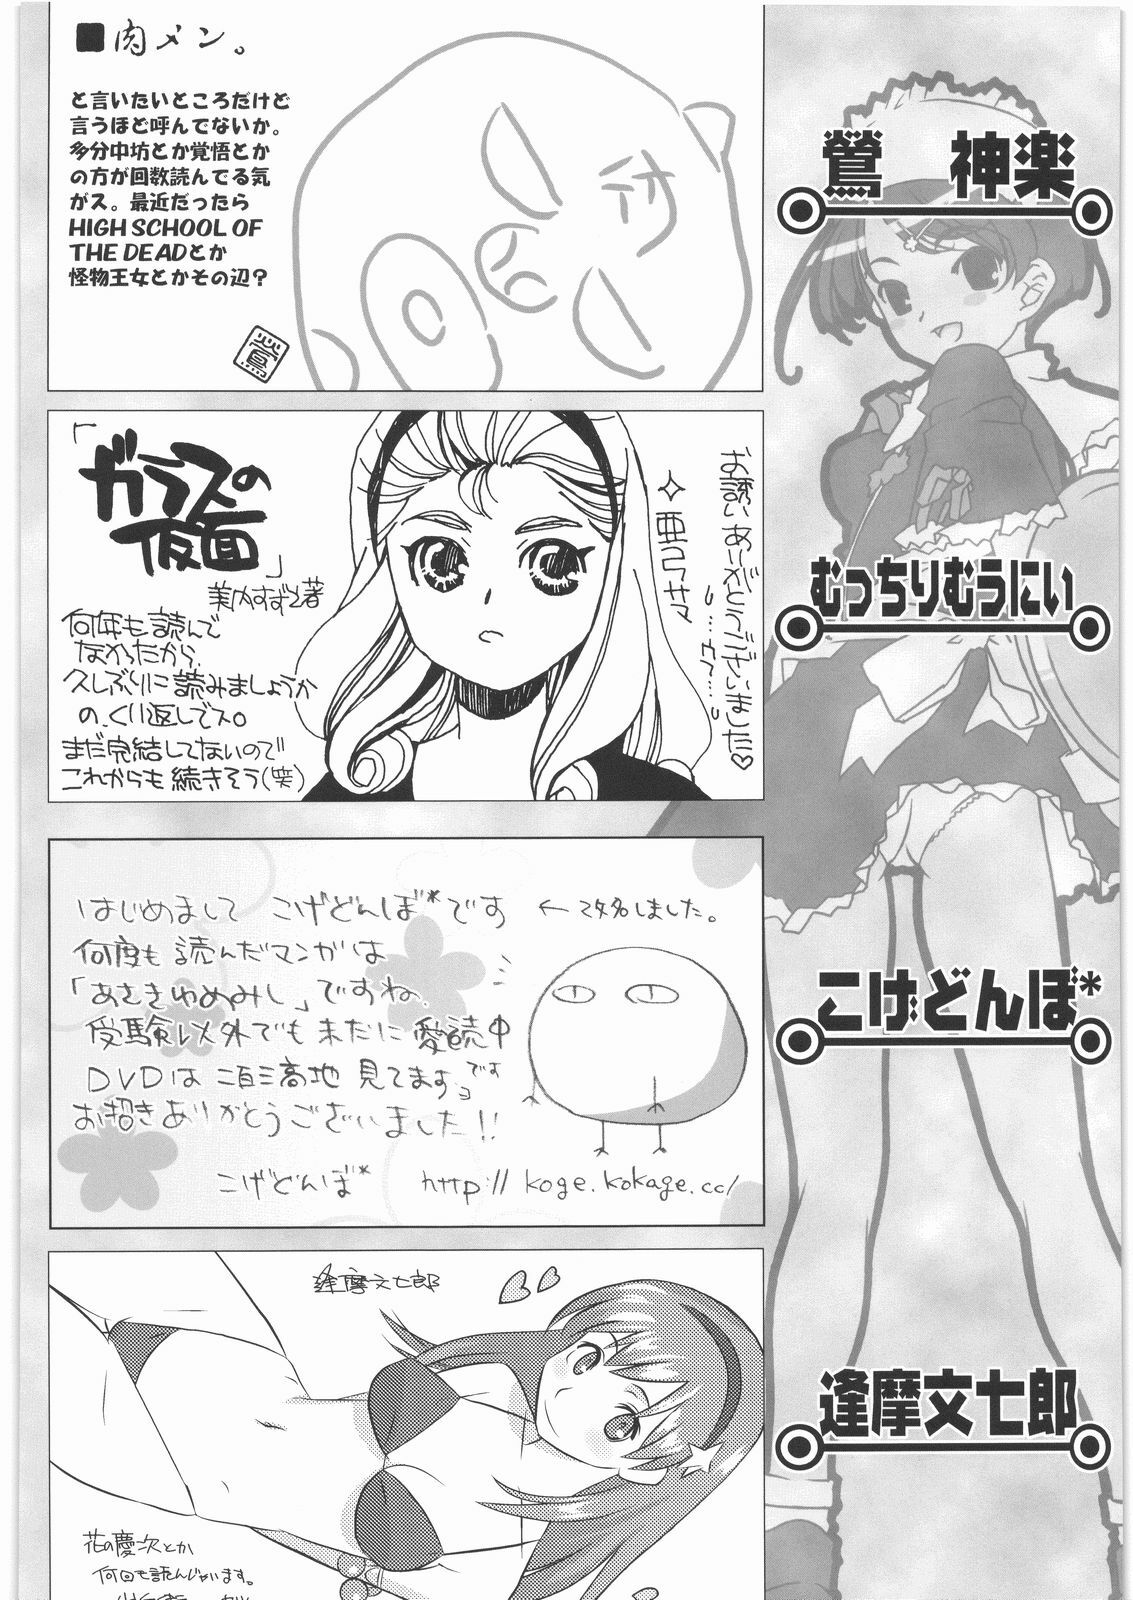 ■肉メン。
と言いたいところだけど
言うほど呼んでないか。
多分中坊とか覚悟とか
の方が回数読んでる気
がス。最近だったら
HIGH SCHOOL OF
THE DEADとか
怪物王女とかその辺?
鶯
鶯 神楽
「ガラスの
仮面」
美内すずえ著
何年も読んで
なかったから、
久しぶりに読みましょうか
の、くり返しでス。
まだ完結してないので
これからも続きそう(笑)
お誘いありがとうございました♡
✧亜コラサマ
むっちりむうにい
はじめまして こげどんぼ*です ←改名しました。
何度も読んだマンガは
「あさきゆめみし」ですね。
受験以外でも未だに愛読中
です
DVDは二百三高地見てますョ
お招きありがとうございました!!
こげどんぼ* http://koge.kokage.cc/
こげどんぼ*
逢摩文七郎
花の慶次とか
何回も読んじゃいます。
逢摩文七郎